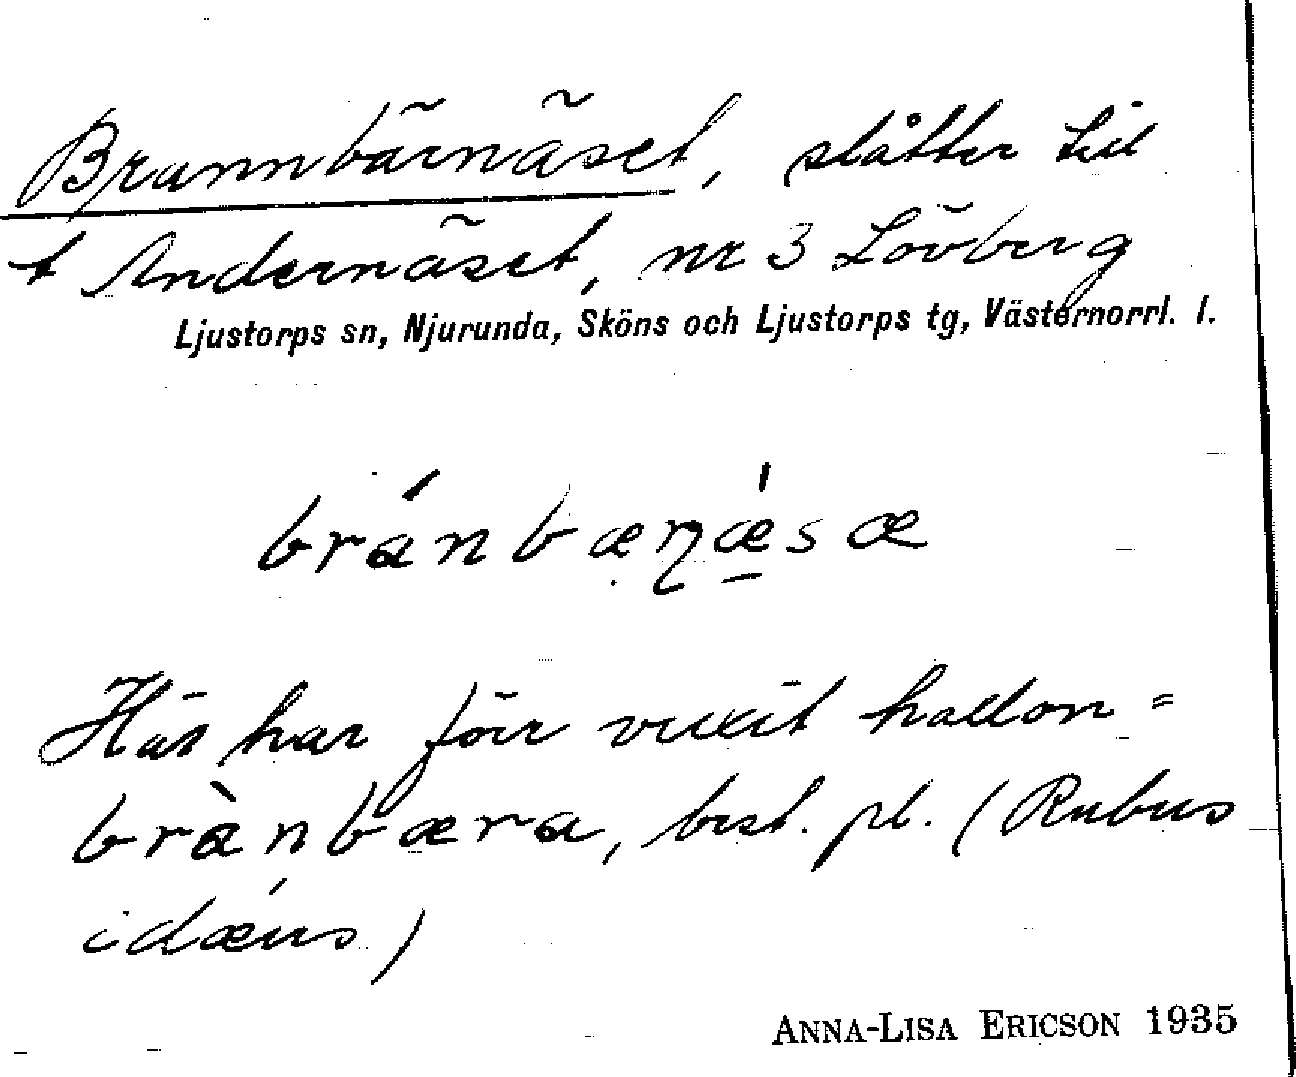 Brannbärnäset, slåtter till
t Andernäset, nr 3 Lövberg
Ljustorps sn, Njurunda, Sköns och Ljustorps tg, Västernorrl. l.
bránbæṇǽsæ
Här har förr vuxit hallon=
brànbæra, best. pl. (Rubus
idæus)
ANNA-LISA ERICSON 1935